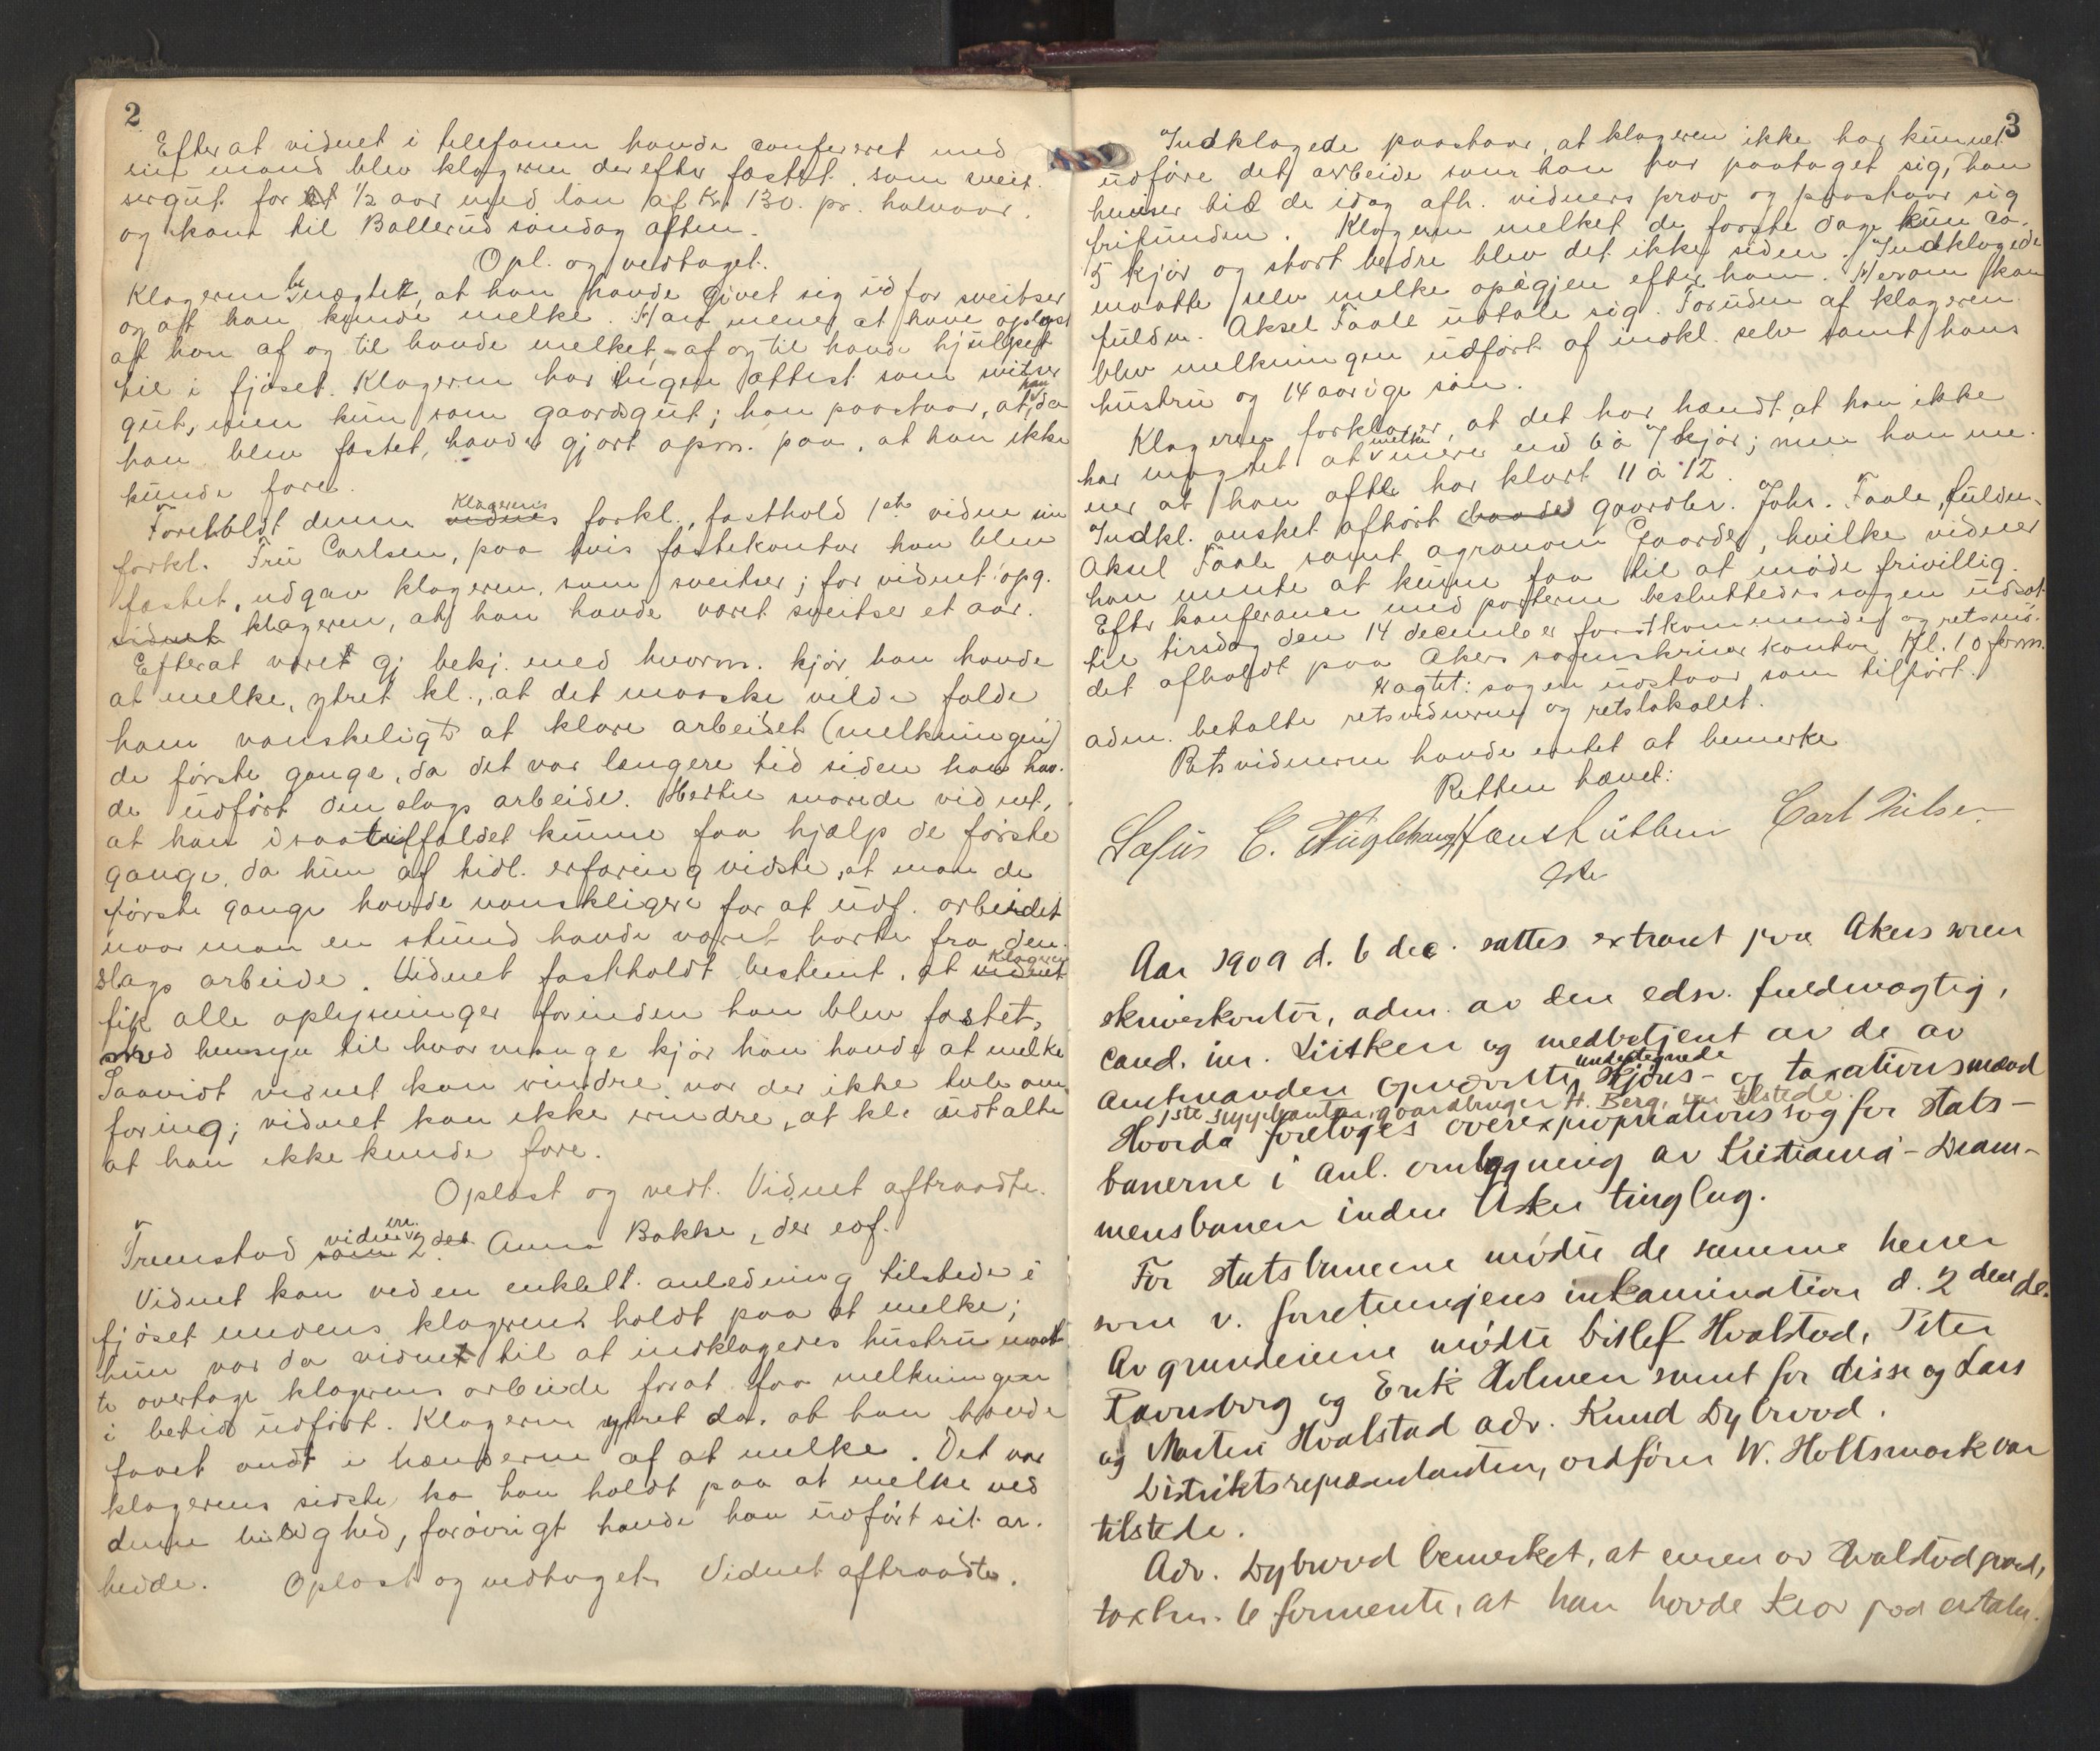 2
Efter at vidnet i telefonen havde confereret med
sin mand blev klageren derefter fæstet som sveit-
sergut for et 1/2 aar med løn af Kr. 130. pr. halvaar.
og kom til Ballerud søndag aften.
Opl. og vedtaget.
Klageren benægtet, at han havde givet sig ud for sveitser
og at han kunde melke. Han mener at have oplyst
at han af og til havde melket, af og til havde hjulpet
til i fjøset. Klageren har ingen attest som svitser
gut, men kun som gaardsgut; han paastaar, at han, da
han blev fæstet, havde gjort opm. paa, at han ikke
kunde fore.
Foreholdt denne vidnes Klagerens forkl., fastholdt 1ste vidne sin
forkl. Fru Carlsen, paa hvis fæstekontor han blev
fæstet, udgav klageren som sveitser; for vidnet opg.
vidnet klageren, at han havde været sveitser et aar.
Efterat været gj. bekj. med hvorm. kjør han havde
at melke, ytret kl., at det maaske vilde falde
ham vanskeligt at klare arbeidet (melkningen)
de første gange, da det var længere tid siden han hav-
de udført den slags arbeide. Hertil svarede vidnet,
at han i saatilfældet kunne faa hjælp de første
gange, da hun af tidl. erfaring vidste, at man de
første gange havde vanskeligere for at udf. arbeidet
naar man en stund havde været borte fra den-
slags arbeide. Vidnet fastholdt bestemt, at vidnet Klageren
fik alle oplysninger forinden han blev fæstet,
med hensyn til hvor mange kjør han havde at melke
Saavidt vidnet kan erindre var der ikke tale om
foring; vidnet kan ikke erindre, at kl. udtalte
at han ikke kunde fore.
Oplæst og vedt. Vidnet aftraadte.
Fremstod som vidne 2det Anna Bakke, der eof.
Vidnet kom ved en enkelt anledning tilstede i
fjøset medens klageren holdt paa at melke;
hun var da vidnet til at indklagedes hustru maat-
te overtage klagerens arbeide forat faa melkningen
i betids udført. Klageren ytret da, at han havde
faaet ondt i hænderne af at melke. Det var
klagerens sidste ko han holdt paa at melke ved
denne leilighed, forøvrigt havde han udført sit ar-
beide. Oplæst og vedtaget. Vidnet aftraadte.
3
Indklagede paastaar, at klageren ikke har kunnet
udføre det arbeide som han har paataget sig, han
henser til de idag afh. vidners prov og paastaar sig
frifunden. Klageren melket de første dage kun ca.
5 kjør og stort bedre blev det ikke siden. Indklagede
maatte selv melke opigjen efter ham. Herom kan
fuldm. Aksel Faale udtale sig. Foruden af klageren
blev melkningen udført af indkl. selv samt hans
hustru og 14 aarige søn.
Klageren forklarer, at det har hændt at han ikke
har magtet at melke mere end 6 à 7 kjør; men han me-
ner at han ofte har klart 11 à 12.
Indkl. ønsket afhørt baade gaardbr. Johs. Faale, fuldm.
Aksel Faale samt agronom Gaarder, hvilke vidner
han mente at kunne faa til at møde frivillig.
Efter konferance med parterne besluttedes sagen udsat
til tirsdag den 14 december førstkommende og retsmø-
det afholdt paa Akers sorenskriver kontor Kl. 10 form.
Vagtet: sagen udstaar som tilført.
adm. betalte retsvidnerne og retslokalet.
Retsvidnerne havde intet at bemerke
Retten hævet:
Carl Nilsen
Aar 1909 d. 6 dec. sattes extraret paa Akers soren
skriverkontor, adm. av den edsv. fuldmægtig,
cand. jur. Lütken og medbetjent av de av
amtmanden opnævnte undertegnede skjøns- og taxationsmænd
1ste suppleanten, gaardbruger H. Berg, var tilstede.
Hvorda foretoges overexpropriationssag for Stats-
banerne i anl. omlægning av Kristiania-Dram-
mensbanen inden Asker tinglag.
For Statsbanerne mødte de samme herrer
som v. forretningens inkamination d. 2den ds.
Av grundeierne mødte Ditlef Hvalstad, Peter
Ravnsborg og Erik Holmen samt for disse og Lars
og Marten Hvalstad adv. Knud Dybwad.
Distriktsrepræsentanten, ordfører W. Holtsmark var
tilstede.
Adv. Dybwad bemerket, at eieren av Hvalstad gaard,
taxtnr. 6 formente, at han havde krav paa erstatn.